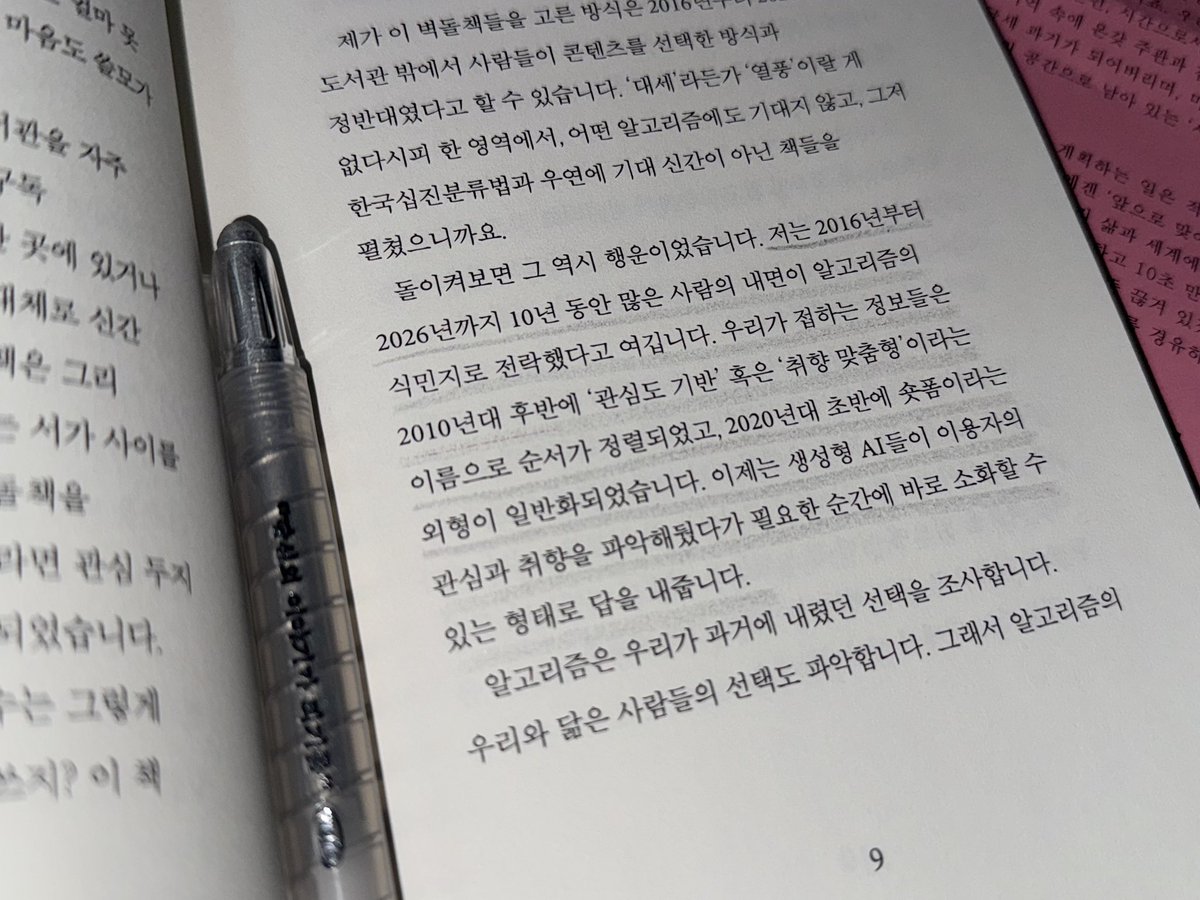 마음도 쓸모가
자주
곳에 있거나
대체로 신간
책은 그리
서가 사이를
책을
라면 관심 두지
되었습니다.
수는 그렇게
쓰지? 이 책
제가 이 벽돌책들을 고른 방식은 2016년부터
도서관 밖에서 사람들이 콘텐츠를 선택한 방식과
정반대였다고 할 수 있습니다. ‘대세’라든가 ‘열풍’이랄 게
없다시피 한 영역에서, 어떤 알고리즘에도 기대지 않고, 그저
한국십진분류법과 우연에 기대 신간이 아닌 책들을
펼쳤으니까요.
돌이켜보면 그 역시 행운이었습니다. 저는 2016년부터
2026년까지 10년 동안 많은 사람의 내면이 알고리즘의
식민지로 전락했다고 여깁니다. 우리가 접하는 정보들은
2010년대 후반에 ‘관심도 기반’ 혹은 ‘취향 맞춤형’이라는
이름으로 순서가 정렬되었고, 2020년대 초반에 숏폼이라는
외형이 일반화되었습니다. 이제는 생성형 AI들이 이용자의
관심과 취향을 파악해뒀다가 필요한 순간에 바로 소화할 수
있는 형태로 답을 내줍니다.
알고리즘은 우리가 과거에 내렸던 선택을 조사합니다.
우리와 닮은 사람들의 선택도 파악합니다. 그래서 알고리즘의
9
속에 온갖 주관과
과기가 되어버리며,
공간으로 남아 있는
계획하는 일은
‘앞으로 맞이
삶과 세계에
10초 만
끊겨 있
경유하